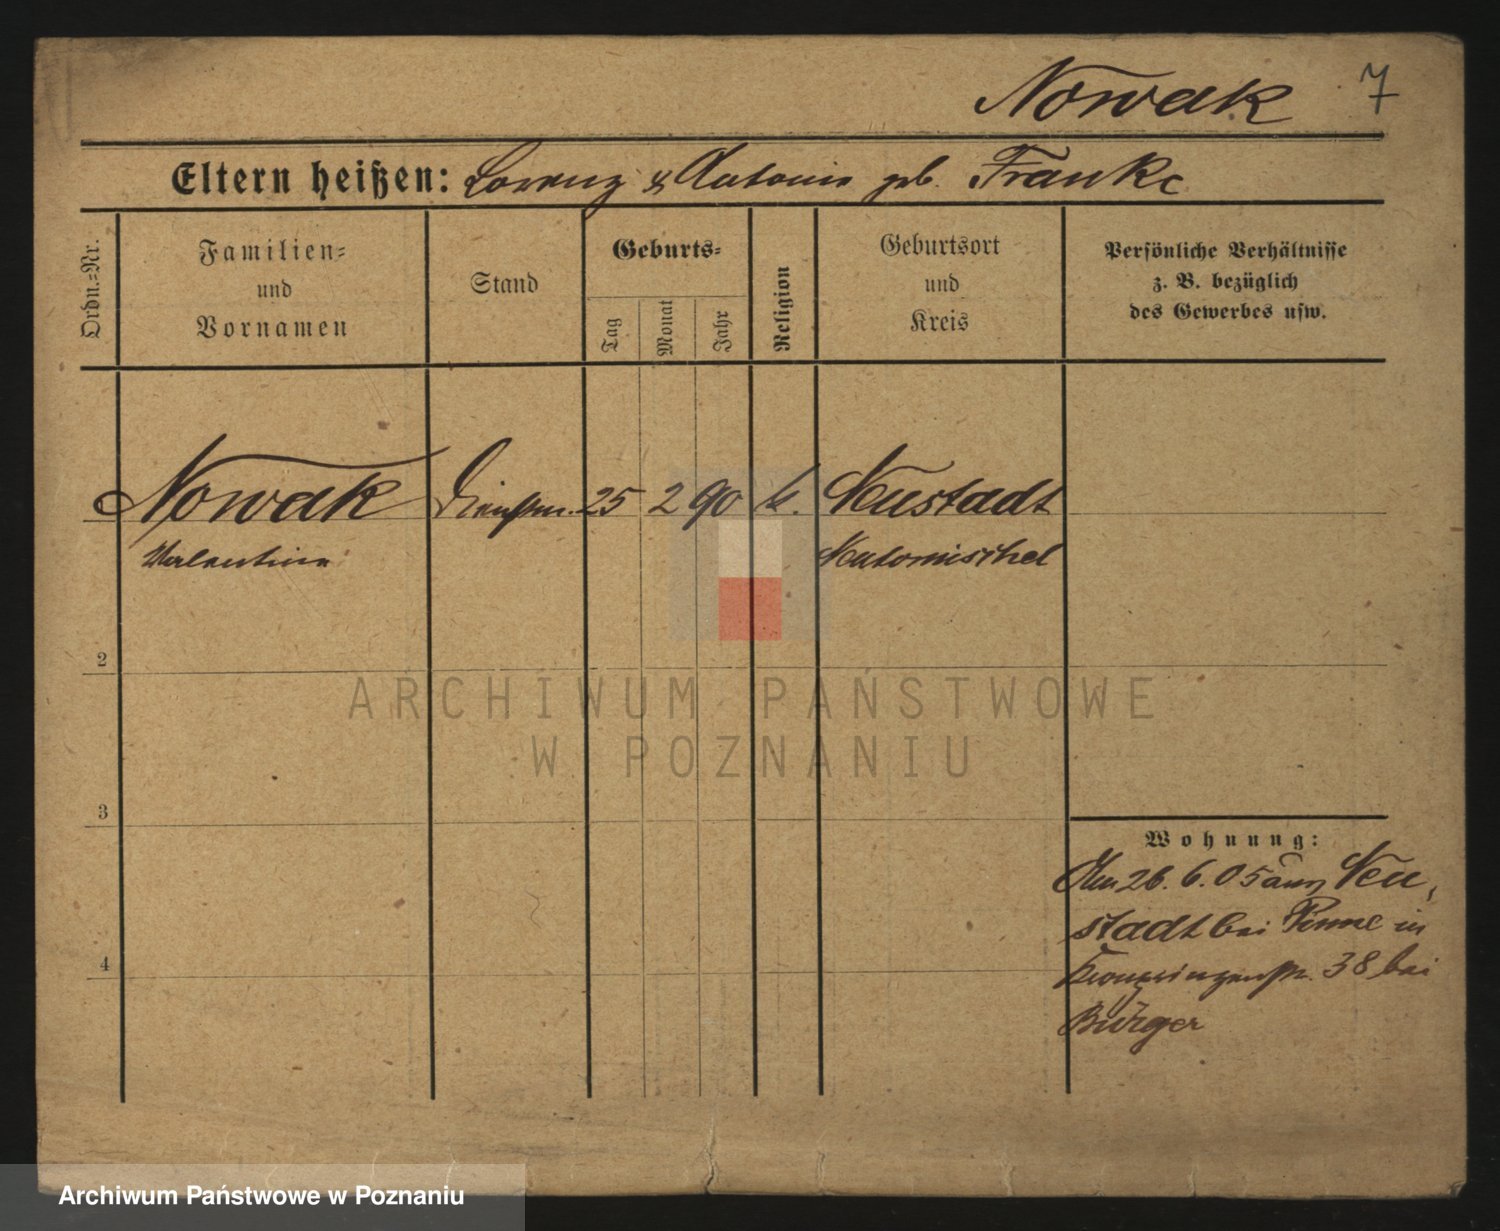 Nowak 7
Eltern heißen: Lorenz & Antonie geb. Franke
Ordn.=Nr.
Familien=
und
Vornamen
Stand
Geburts=
Tag
Monat
Jahr
Religion
Geburtsort
und
Kreis
Persönliche Verhältnisse
z. B. bezüglich
des Gewerbes usw.
Nowak Dienstm. 25 2 90 k. Neustadt
Valentine Neutomischel
2
3
4
Wohnung:
Am 26. 6. 05 aus Neu
stadt bei Pinne in
Kronprinzenstr. 38 bei
Bürger
ARCHIWUM PAŃSTWOWE
W POZNANIU
Archiwum Państwowe w Poznaniu